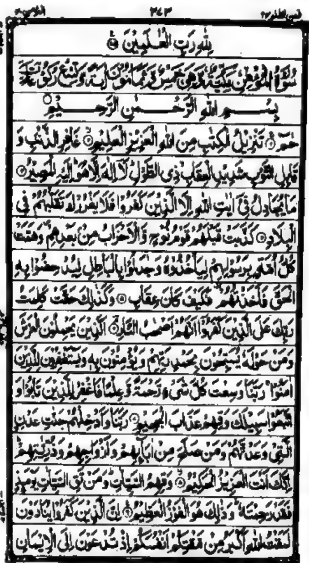 لِلّٰهِ رَبِّ الْعٰلَمِيْنَ
بِسْمِ اللهِ الرَّحْمٰنِ الرَّحِيْمِ
حٰمٓ تَنْزِيْلُ الْكِتٰبِ مِنَ اللهِ الْعَزِيْزِ الْعَلِيْمِ غَافِرِ الذَّنْبِ وَ
قَابِلِ التَّوْبِ شَدِيْدِ الْعِقَابِ ذِى الطَّوْلِ لَآ اِلٰهَ اِلَّا هُوَ اِلَيْهِ الْمَصِيْرُ
مَا يُجَادِلُ فِىْٓ اٰيٰتِ اللهِ اِلَّا الَّذِيْنَ كَفَرُوْا فَلَا يَغْرُرْكَ تَقَلُّبُهُمْ فِى
الْبِلَادِ كَذَّبَتْ قَبْلَهُمْ قَوْمُ نُوْحٍ وَّالْاَحْزَابُ مِنْۢ بَعْدِهِمْ وَهَمَّتْ
كُلُّ اُمَّةٍۭ بِرَسُوْلِهِمْ لِيَاْخُذُوْهُ وَجٰدَلُوْا بِالْبَاطِلِ لِيُدْحِضُوْا بِهِ
الْحَقَّ فَاَخَذْتُهُمْ فَكَيْفَ كَانَ عِقَابِ وَكَذٰلِكَ حَقَّتْ كَلِمَتُ
رَبِّكَ عَلَى الَّذِيْنَ كَفَرُوْٓا اَنَّهُمْ اَصْحٰبُ النَّارِ اَلَّذِيْنَ يَحْمِلُوْنَ الْعَرْشَ
وَمَنْ حَوْلَهٗ يُسَبِّحُوْنَ بِحَمْدِ رَبِّهِمْ وَيُؤْمِنُوْنَ بِهٖ وَيَسْتَغْفِرُوْنَ لِلَّذِيْنَ
اٰمَنُوْا رَبَّنَا وَسِعْتَ كُلَّ شَىْءٍ رَّحْمَةً وَّعِلْمًا فَاغْفِرْ لِلَّذِيْنَ تَابُوْا وَ
اتَّبَعُوْا سَبِيْلَكَ وَقِهِمْ عَذَابَ الْجَحِيْمِ رَبَّنَا وَاَدْخِلْهُمْ جَنّٰتِ عَدْنِ
الَّتِىْ وَعَدْتَّهُمْ وَمَنْ صَلَحَ مِنْ اٰبَآئِهِمْ وَاَزْوَاجِهِمْ وَذُرِّيّٰتِهِمْ
اِنَّكَ اَنْتَ الْعَزِيْزُ الْحَكِيْمُ وَقِهِمُ السَّيِّاٰتِ وَمَنْ تَقِ السَّيِّاٰتِ يَوْمَئِذٍ
فَقَدْ رَحِمْتَهٗ وَذٰلِكَ هُوَ الْفَوْزُ الْعَظِيْمُ اِنَّ الَّذِيْنَ كَفَرُوْا يُنَادَوْنَ
لَمَقْتُ اللهِ اَكْبَرُ مِنْ مَّقْتِكُمْ اَنْفُسَكُمْ اِذْ تُدْعَوْنَ اِلَى الْاِيْمَانِ